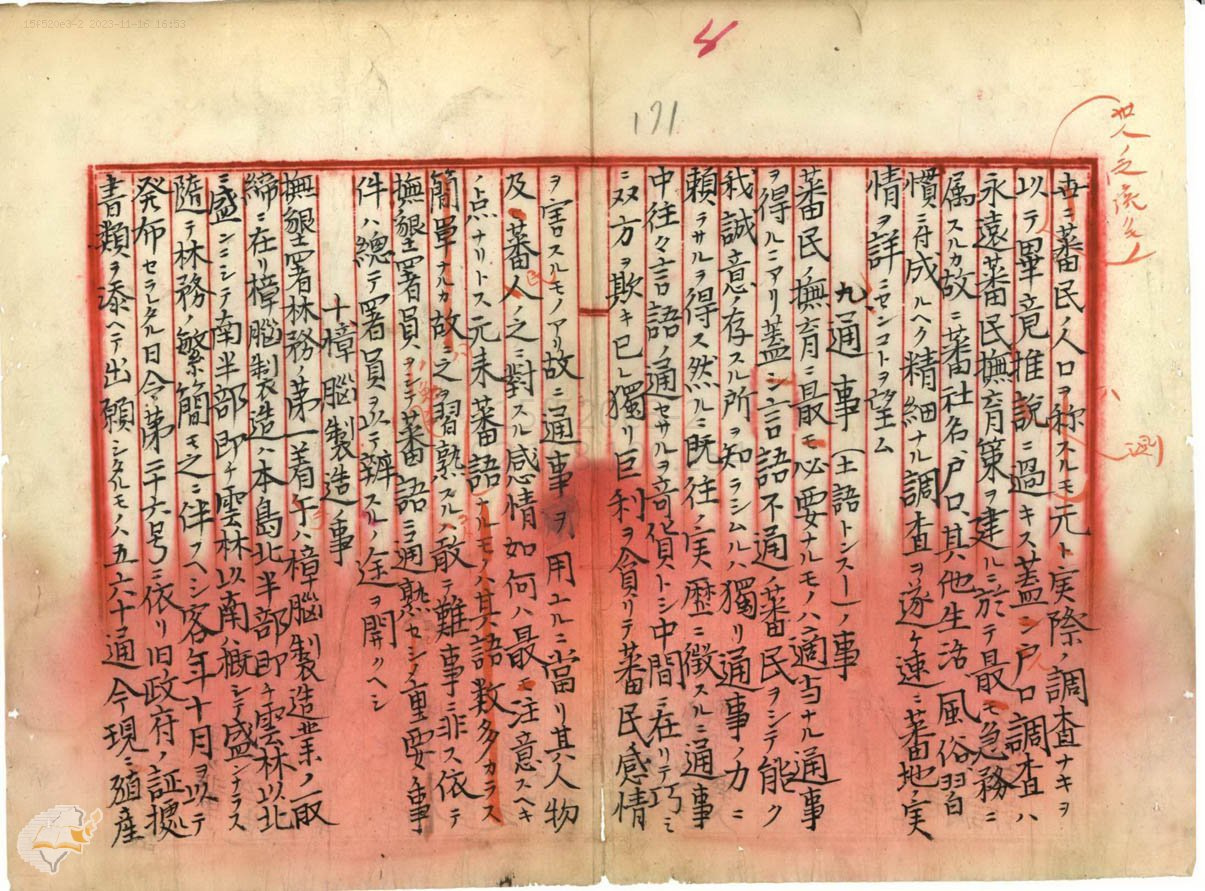 158520e3-2 2023-11-16 16:53
171
世ニ蕃民ノ人口ヲ称スルモ元ト実際ノ調査ナキヲ
以テ畢竟推説ニ過キス蓋シ戸口調査ハ
永遠蕃民撫育策ヲ建ルニ於テ最モ急務ニ
属スルカ故ニ蕃社名、戸口、其他生活風俗習
慣ニ付成ルヘク精細ナル調査ヲ遂ケ速ニ蕃地ノ実
情ヲ詳ニセンコトヲ望ム
九通事(土語トンスー)ノ事
蕃民ノ撫育ニ最モ必要ナルモノハ適当ナル通事
ヲ得ルニアリ蓋シ言語不通ノ蕃民ヲシテ能ク
我誠意ノ存スル所ヲ知ラシムルハ獨リ通事ノ力ニ
頼ラサルヲ得ス然ルニ既往ノ実歴ニ徴スルニ通事
中往々言語ノ通セサルヲ奇貨トシ中間ニ在リテ巧ミ
ニ双方ヲ欺キ己レ獨リ巨利ヲ貪リテ蕃民感情
ヲ害スルモノアリ故ニ通事ヲ用ユルニ當リ其人物
及蕃人ノ之ニ對スル感情如何ハ最モ注意スヘキ
ノ点ナリトス元来蕃語ナルモノハ其語数多カラス
簡單ナルカ故ニ之ヲ習熟スルハ敢テ難事ニ非ス依テ
撫墾署員ヲシテ蕃語ニ通熟セシムル重要ノ事
件ハ總テ署員ヲ以テ辨スルノ途ヲ開クヘシ
十樟腦製造ノ事
撫墾署林務ノ第一着手ハ樟腦製造業ノ取
締ニ在リ樟腦製造ハ本島北半部即チ雲林以北
ニ盛ンニシテ南半部即チ雲林以南ハ概シテ盛ンナラス
隨テ林務ノ繁簡モ之ニ伴フヘシ客年十月ヲ以テ
発布セラレタル日令第二十六号ニ依リ旧政府ノ証據
書類ヲ添ヘテ出願シタルモノハ五六十通今現ニ殖産